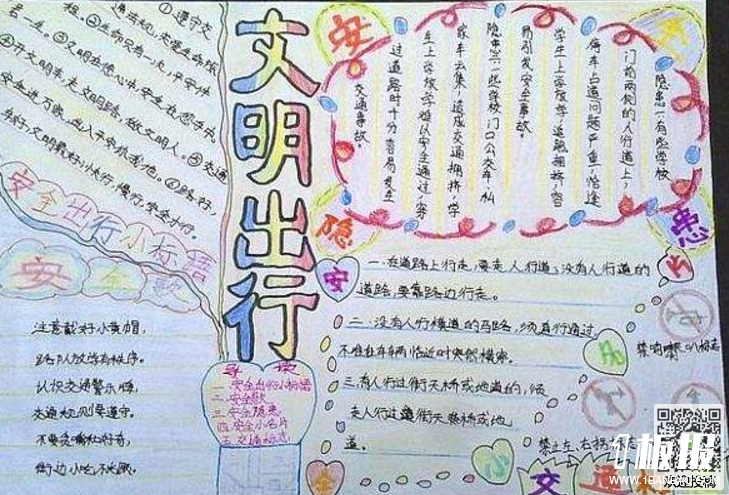 ①遵守交
通法规,关爱生命旅
程。②生命只有一次,平安伴
君一生。③文明在您心中,安全在您手中。
④开文明车,走文明路,做文明人。⑤交通
安全进万家,
安全出行小标语
安全歌
注意戴好小黄帽,
路队放学有秩序。
认识交通警示牌,
交通规则要遵守。
街边小吃不
文明出行
导读
一.安全出行小标语
二.安全歌
三.安全隐患
四.安全小名片
五.交通标志
安全
隐患
隐患一有些学校
门前两侧的人行道上,
每年占道问题严重,恰逢
学生上学放学,道路拥挤,容
易引发安全事故。
隐患二一些学校门口公交车、私
家车云集,造成交通拥挤,学
生上学放学难以安全通过,穿
过道路时十分容易发生
交通事故。
一.在道路上行走,要走人行道;没有人行道的
道路,要靠路边行走。
二.没有人行横道的马路,须直行通过,
不准在车辆临近时突然横穿。
三.有人行过街天桥或地道的,须
走人行过街天桥或地
道。
安
全
小
名
片
禁鸣喇叭标志
禁止左、右拐
交通
板报
www.1BANBAO.COM
欢迎投稿